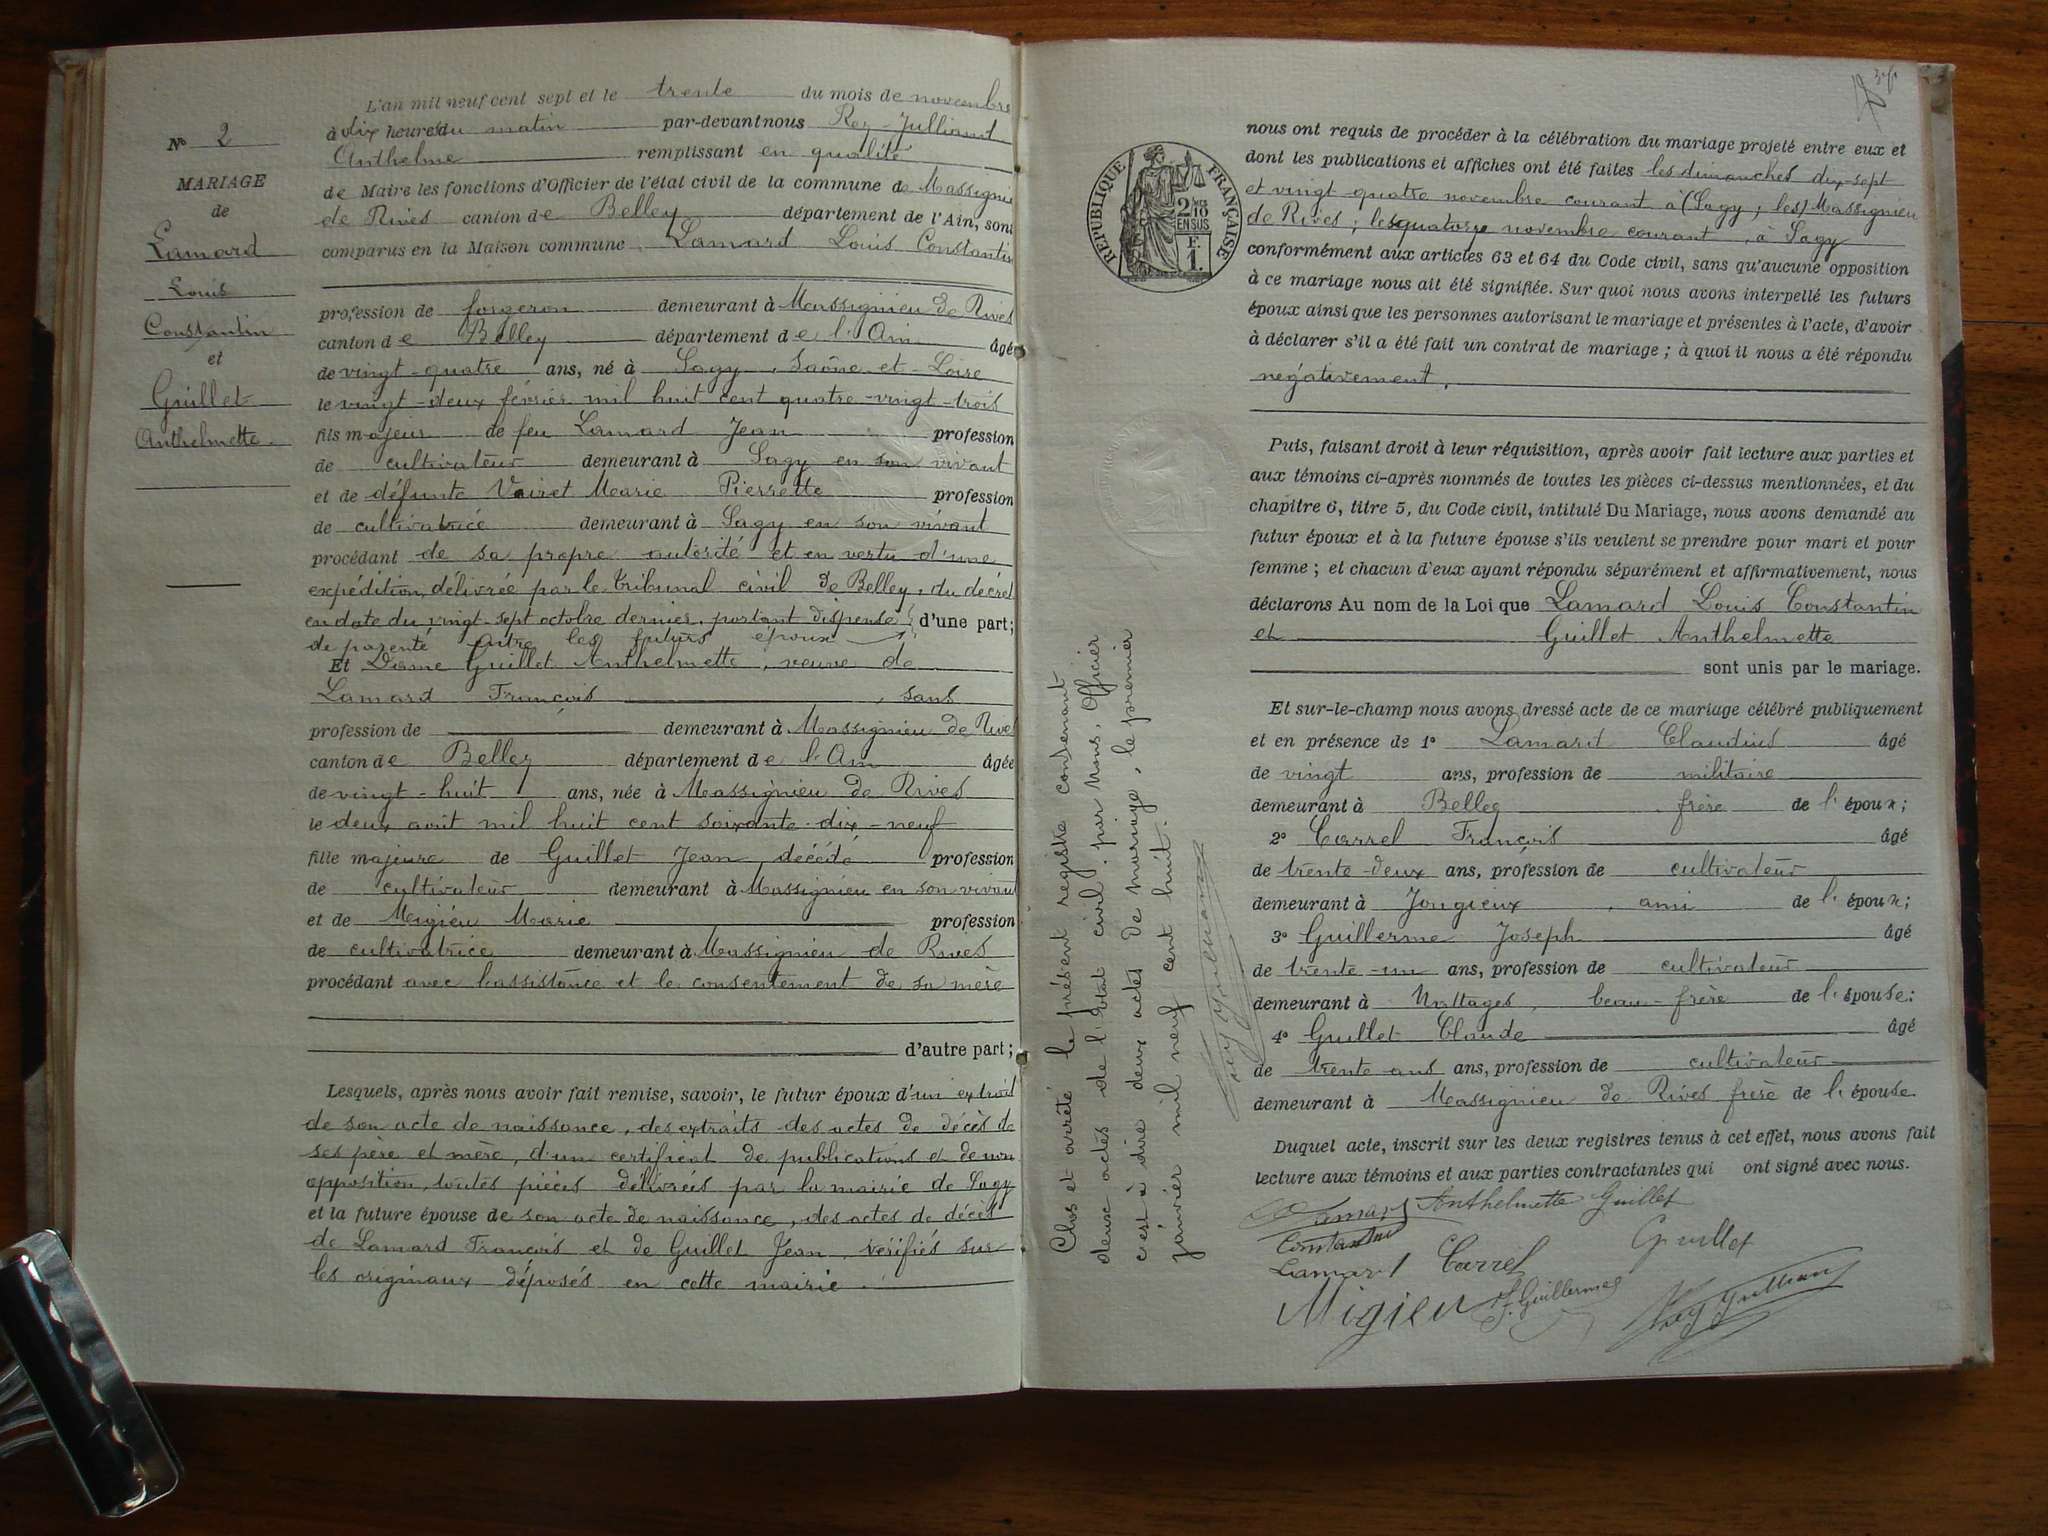 N° 2
MARIAGE
de
Lamard
Louis
Constantin
et
Guillet
Anthelmette
L'an mil neuf cent sept et le trente du mois de novembre
à dix heures du matin par-devant nous Rey-Julliand
Anthelme remplissant en qualité
de Maire les fonctions d'Officier de l'état civil de la commune de Massignieu
de Rives canton de Belley département de l'Ain, sont
comparus en la Maison commune Lamard Louis Constantin
profession de forgeron demeurant à Massignieu de Rives
canton de Belley département de l'Ain âgé
de vingt-quatre ans, né à Sagy, Saône-et-Loire
le vingt-deux février mil huit cent quatre-vingt-trois
fils majeur de feu Lamard Jean profession
de cultivateur demeurant à Sagy en son vivant
et de défunte Vairet Marie Pierrette profession
de cultivatrice demeurant à Sagy en son vivant
procédant de sa propre autorité et en vertu d'une
expédition, délivrée par le tribunal civil de Belley, du décret
en date du vingt-sept octobre dernier, portant dispense d'une part;
de parenté entre les futurs époux
Et Dame Guillet Anthelmette, veuve de
Lamard François, sans
profession de demeurant à Massignieu de Rives
canton de Belley département de l'Ain âgée
de vingt-huit ans, née à Massignieu de Rives
le deux août mil huit cent soixante-dix-neuf
fille majeure de Guillet Jean, décédé profession
de cultivateur demeurant à Massignieu en son vivant
et de Migieu Marie profession
de cultivatrice demeurant à Massignieu de Rives
procédant avec l'assistance et le consentement de sa mère
d'autre part;
Lesquels, après nous avoir fait remise, savoir, le futur époux d'un extrait
de son acte de naissance, des extraits des actes de décès de
ses père et mère, d'un certificat de publications et de non
opposition, toutes pièces délivrées par la mairie de Sagy
et la future épouse de son acte de naissance, des actes de décès
de Lamard François et de Guillet Jean, vérifiés sur
les originaux déposés en cette mairie.
RÉPUBLIQUE FRANÇAISE
2/10 EN SUS
F.
1.
nous ont requis de procéder à la célébration du mariage projeté entre eux et
dont les publications et affiches ont été faites les dimanches dix-sept
et vingt-quatre novembre courant à (Sagy, les) Massignieu
de Rives; les quatorze novembre courant, à Sagy
conformément aux articles 63 et 64 du Code civil, sans qu'aucune opposition
à ce mariage nous ait été signifiée. Sur quoi nous avons interpellé les futurs
époux ainsi que les personnes autorisant le mariage et présentes à l'acte, d'avoir
à déclarer s'il a été fait un contrat de mariage; à quoi il nous a été répondu
négativement.
Puis, faisant droit à leur réquisition, après avoir fait lecture aux parties et
aux témoins ci-après nommés de toutes les pièces ci-dessus mentionnées, et du
chapitre 6, titre 5, du Code civil, intitulé Du Mariage, nous avons demandé au
futur époux et à la future épouse s'ils veulent se prendre pour mari et pour
femme; et chacun d'eux ayant répondu séparément et affirmativement, nous
déclarons Au nom de la Loi que Lamard Louis Constantin
et Guillet Anthelmette
sont unis par le mariage.
Et sur-le-champ nous avons dressé acte de ce mariage célébré publiquement
et en présence de 1° Lamard Claudius âgé
de vingt ans, profession de militaire
demeurant à Belley, frère de l'époux;
2° Carrel François âgé
de trente-deux ans, profession de cultivateur
demeurant à Jongieux, ami de l'époux;
3° Guillerme Joseph âgé
de trente-un ans, profession de cultivateur
demeurant à Nattages, beau-frère de l'épouse;
4° Guillet Claude âgé
de trente ans ans, profession de cultivateur
demeurant à Massignieu de Rives frère de l'épouse
Duquel acte, inscrit sur les deux registres tenus à cet effet, nous avons fait
lecture aux témoins et aux parties contractantes qui ont signé avec nous.
Lamard Anthelmette Guillet
Constantin
Guillet
Lamard Carrel
Migieu J. Guillerme Rey Julliand
Clos et arrêté le présent registre contenant
deux actes de l'état civil, par Nous, Officier
c'est à dire deux actes de mariage, le premier
janvier mil neuf cent huit.
Rey Julliand